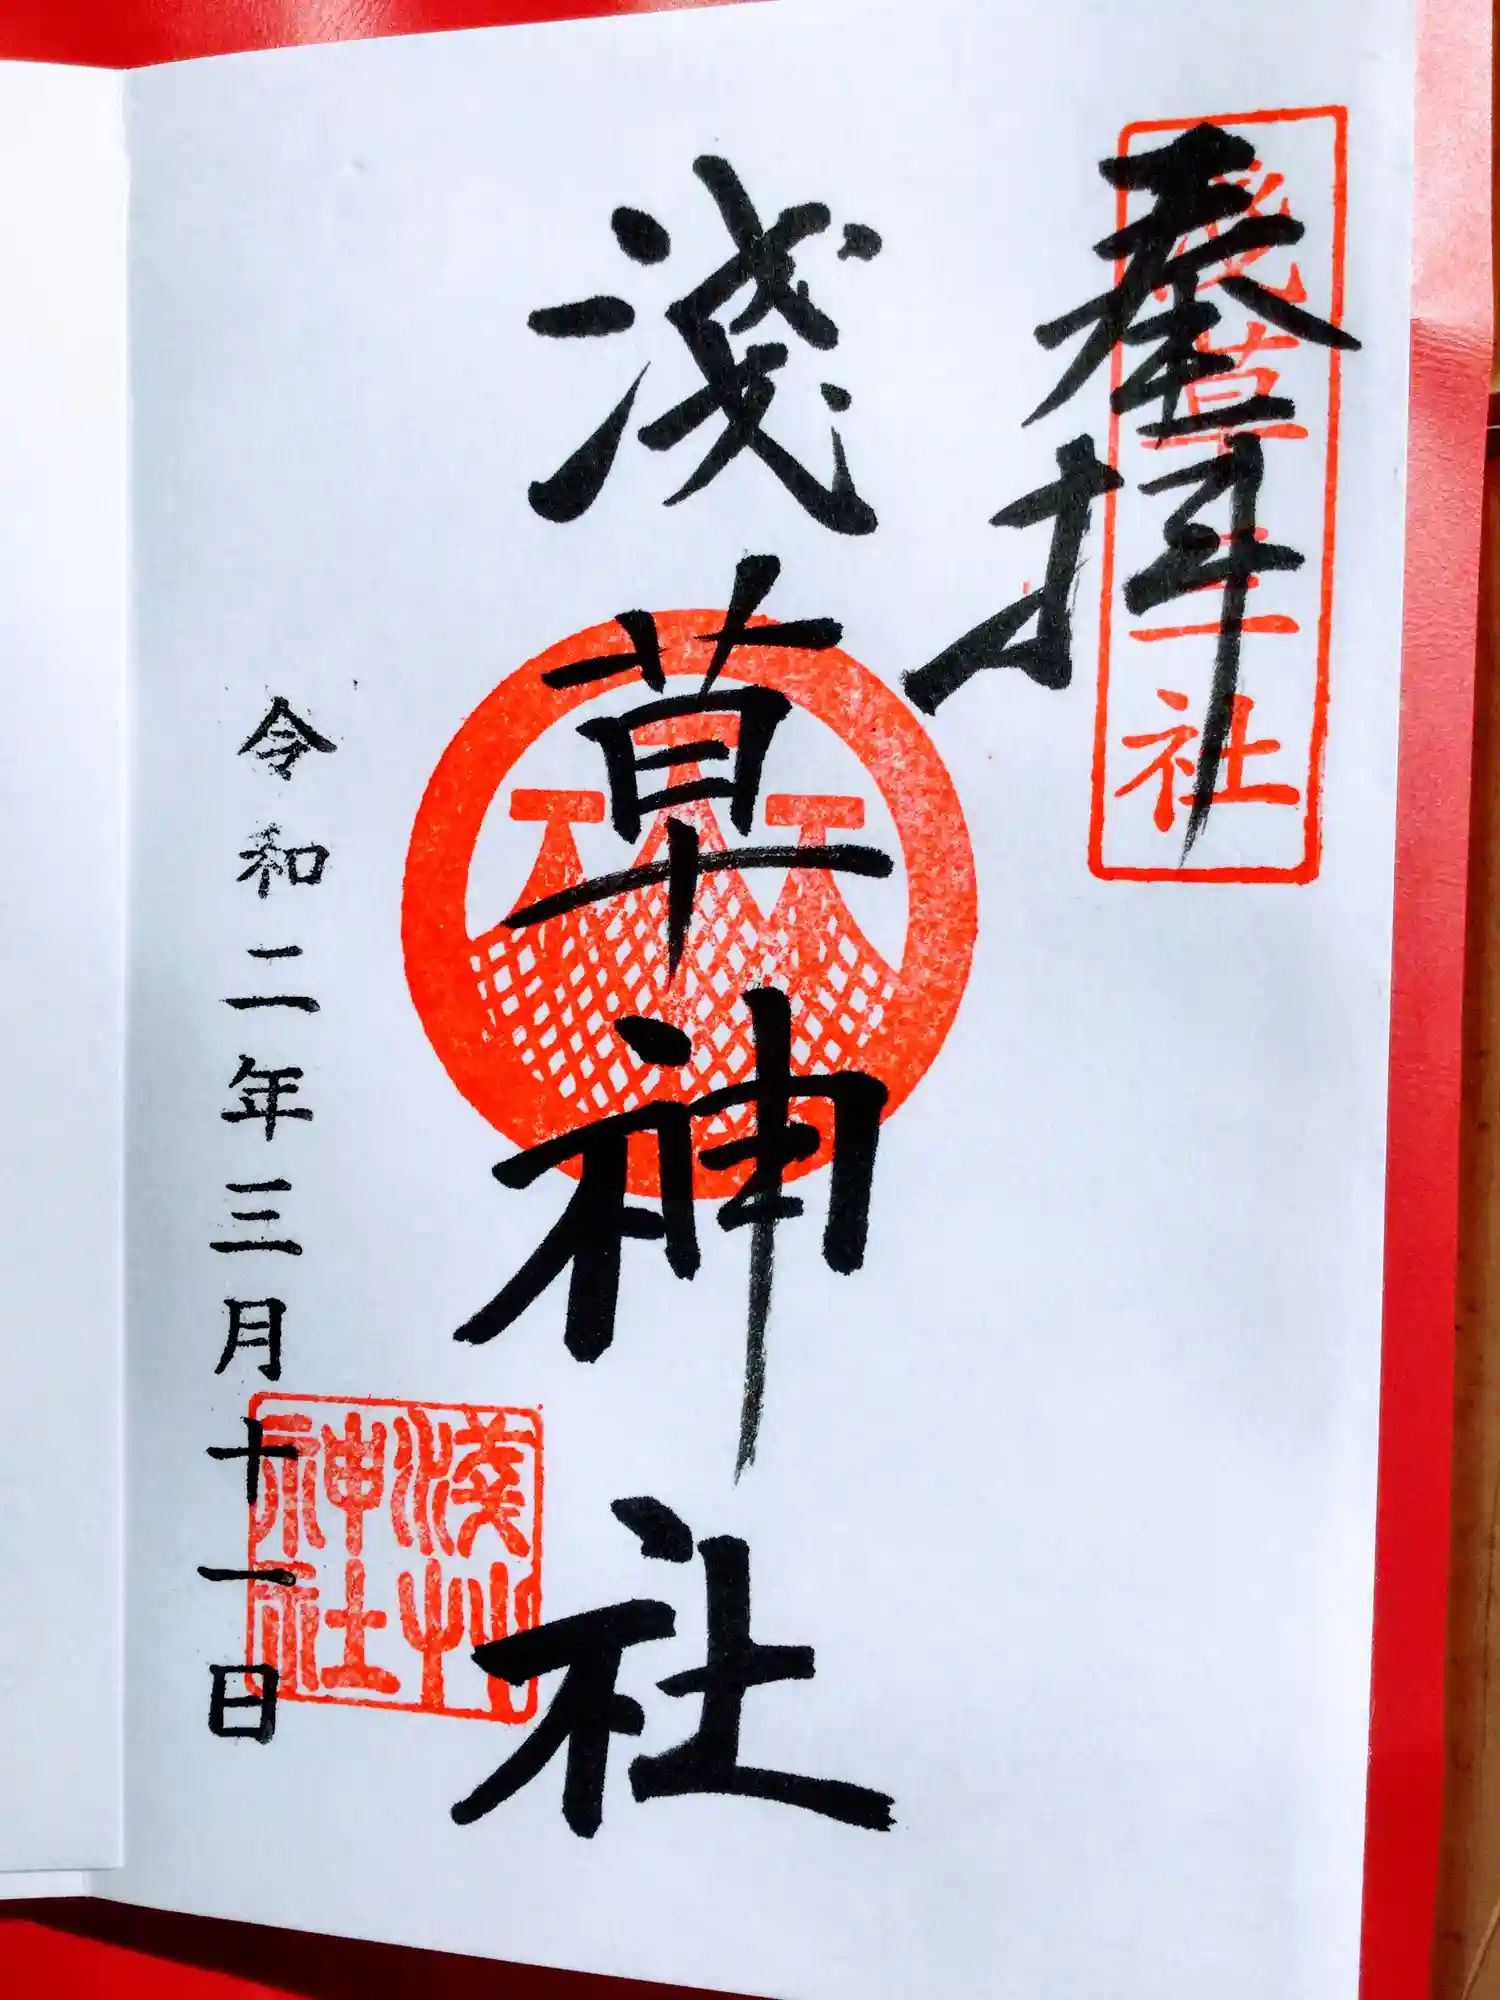 奉拝
浅草三社
淺草神社
淺艸
神社
令和二年三月十一日